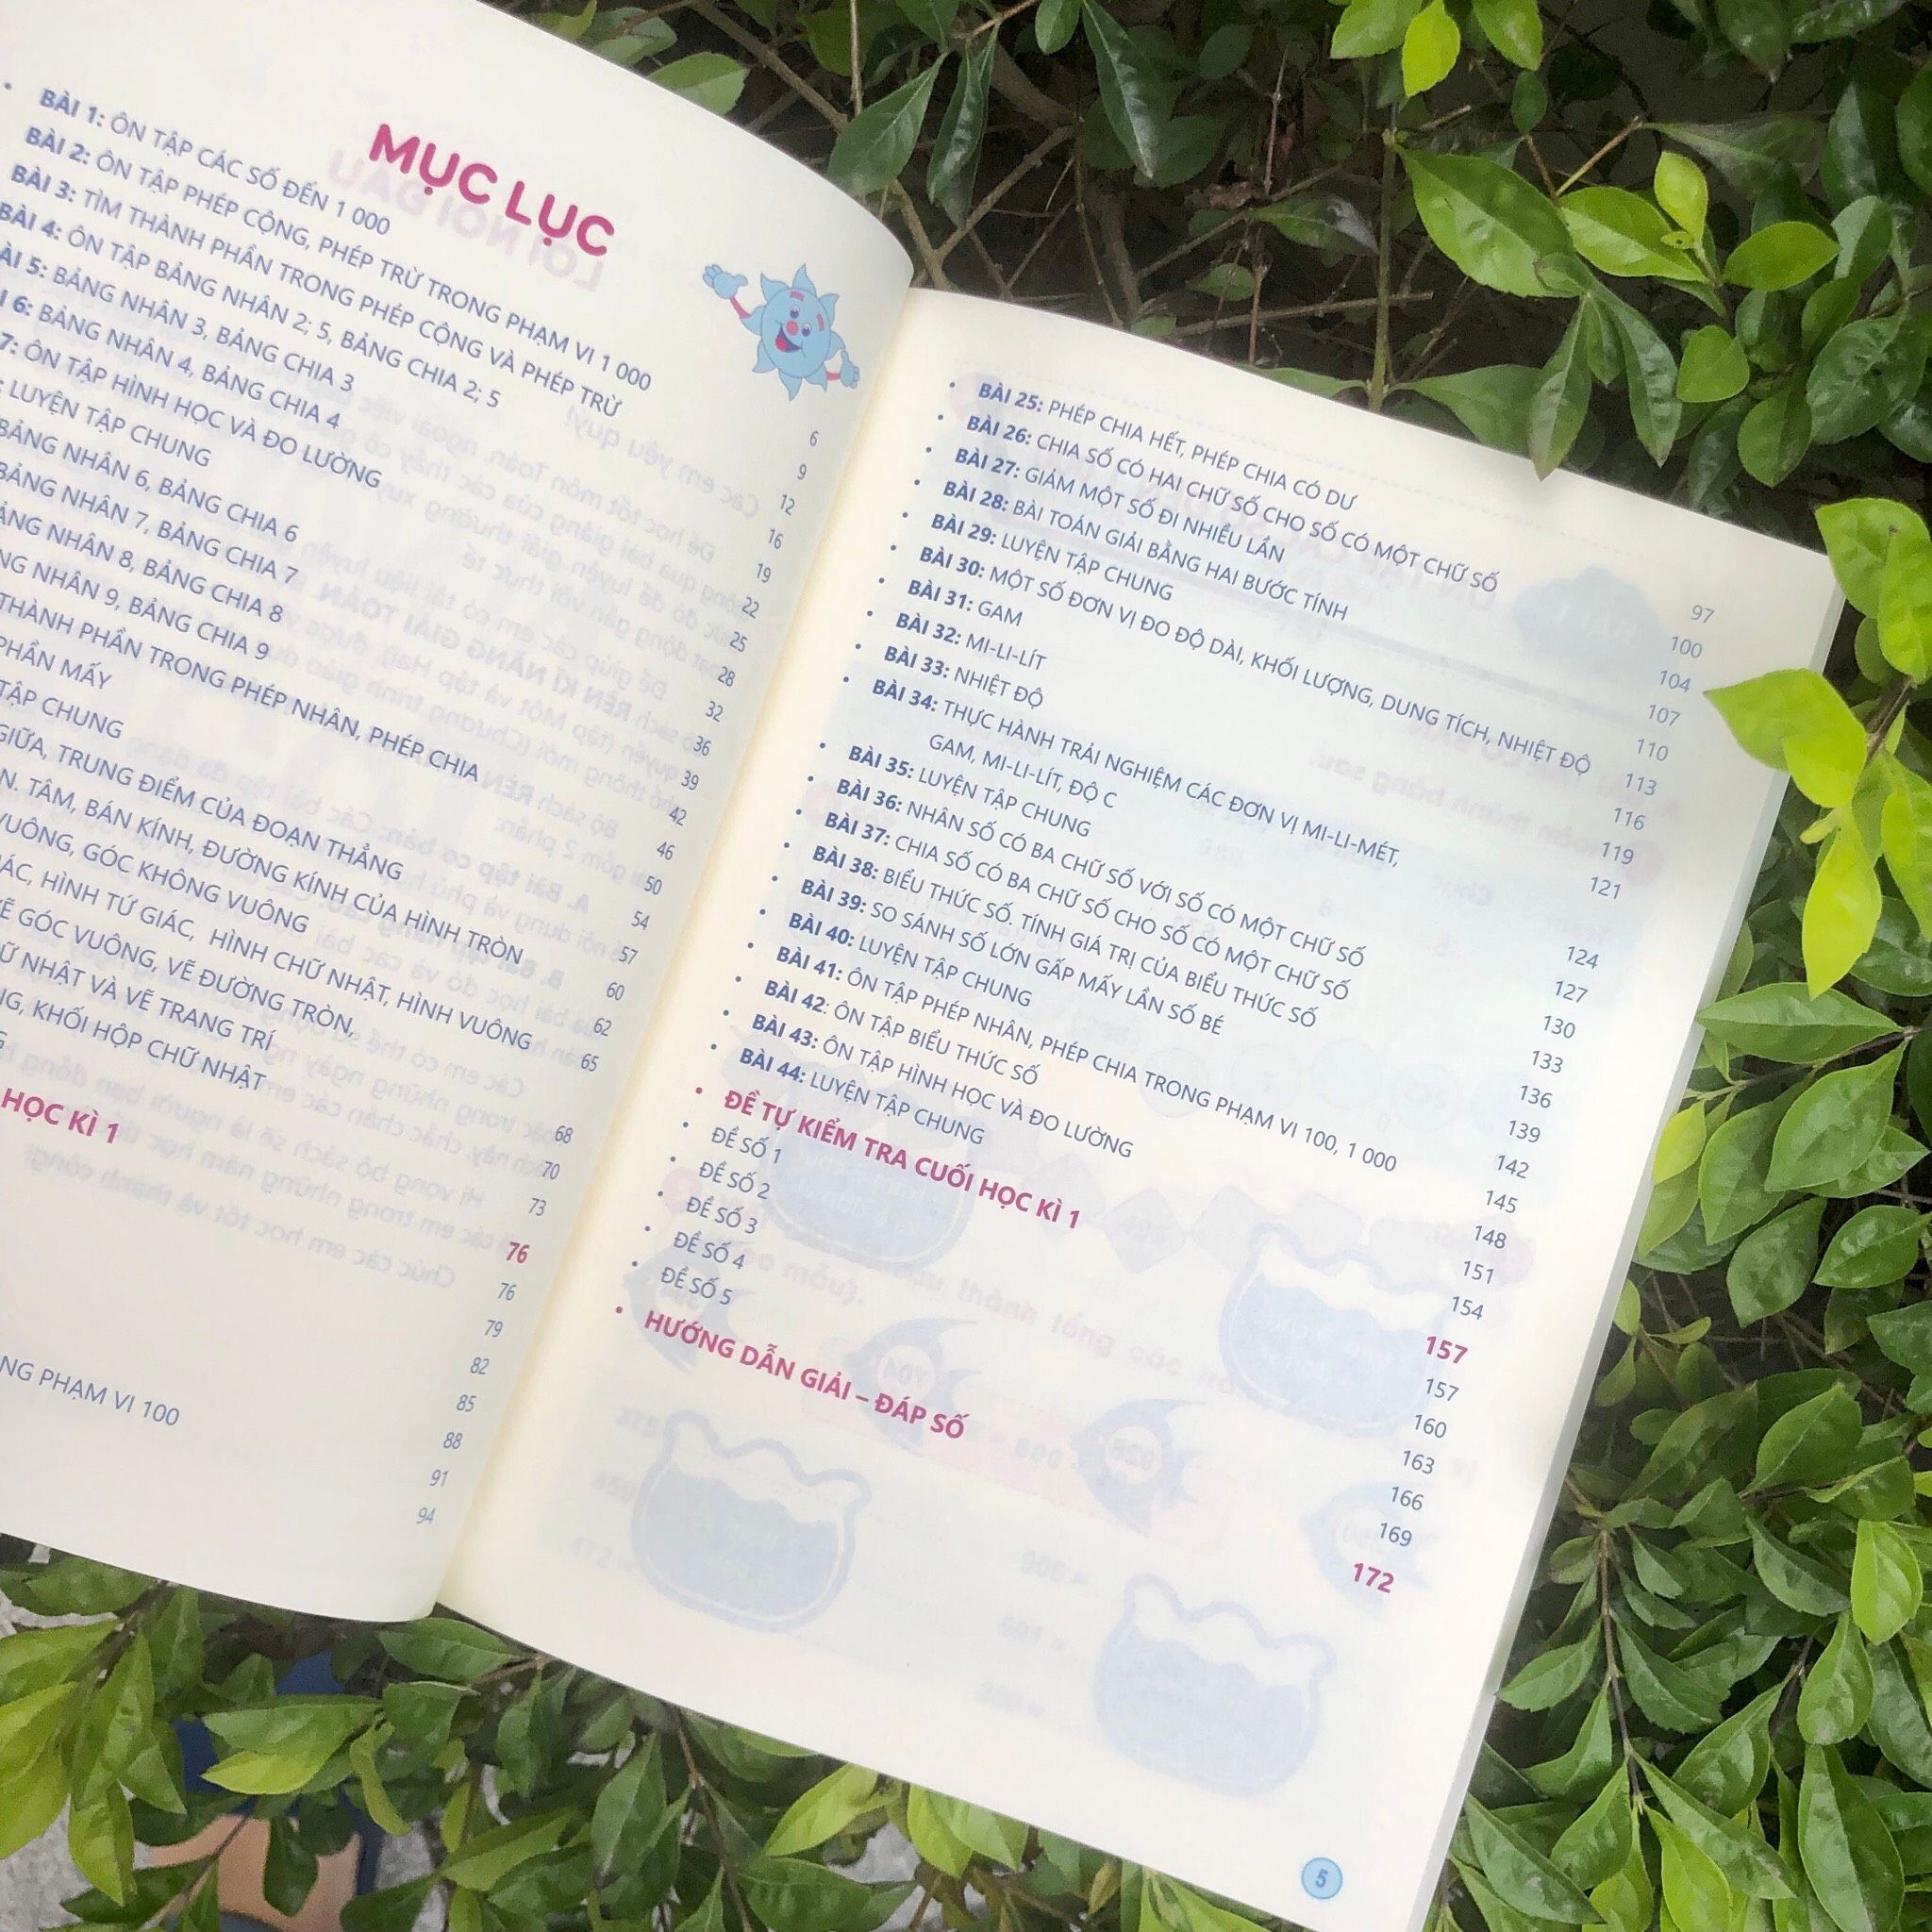 MỤC LỤC
BÀI 1: ÔN TẬP CÁC SỐ ĐẾN 1 000 6
BÀI 2: ÔN TẬP PHÉP CỘNG, PHÉP TRỪ TRONG PHẠM VI 1 000 9
BÀI 3: TÌM THÀNH PHẦN TRONG PHÉP CỘNG VÀ PHÉP TRỪ 12
BÀI 4: ÔN TẬP BẢNG NHÂN 2; 5, BẢNG CHIA 2; 5 16
5: BẢNG NHÂN 3, BẢNG CHIA 3 19
6: BẢNG NHÂN 4, BẢNG CHIA 4 22
7: ÔN TẬP HÌNH HỌC VÀ ĐO LƯỜNG 25
LUYỆN TẬP CHUNG 28
BẢNG NHÂN 6, BẢNG CHIA 6 32
BẢNG NHÂN 7, BẢNG CHIA 7 36
NHÂN 8, BẢNG CHIA 8 39
NHÂN 9, BẢNG CHIA 9 42
THÀNH PHẦN TRONG PHÉP NHÂN, PHÉP CHIA 46
PHẦN MẤY 50
TẬP CHUNG 54
GIỮA, TRUNG ĐIỂM CỦA ĐOẠN THẲNG 57
TÂM, BÁN KÍNH, ĐƯỜNG KÍNH CỦA HÌNH TRÒN 60
VUÔNG, GÓC KHÔNG VUÔNG 62
HÌNH TỨ GIÁC, HÌNH CHỮ NHẬT, HÌNH VUÔNG 65
GÓC VUÔNG, VẼ ĐƯỜNG TRÒN,
NHẬT VÀ VẼ TRANG TRÍ 68
KHỐI HỘP CHỮ NHẬT 70
73
HỌC KÌ 1 76
76
79
82
85
PHẠM VI 100 88
91
94
• BÀI 25: PHÉP CHIA HẾT, PHÉP CHIA CÓ DƯ 97
• BÀI 26: CHIA SỐ CÓ HAI CHỮ SỐ CHO SỐ CÓ MỘT CHỮ SỐ 100
• BÀI 27: GIẢM MỘT SỐ ĐI NHIỀU LẦN 104
• BÀI 28: BÀI TOÁN GIẢI BẰNG HAI BƯỚC TÍNH 107
• BÀI 29: LUYỆN TẬP CHUNG 110
• BÀI 30: MỘT SỐ ĐƠN VỊ ĐO ĐỘ DÀI, KHỐI LƯỢNG, DUNG TÍCH, NHIỆT ĐỘ 113
• BÀI 31: GAM 116
• BÀI 32: MI-LI-LÍT 119
• BÀI 33: NHIỆT ĐỘ 121
• BÀI 34: THỰC HÀNH TRẢI NGHIỆM CÁC ĐƠN VỊ MI-LI-MÉT,
GAM, MI-LI-LÍT, ĐỘ C 124
• BÀI 35: LUYỆN TẬP CHUNG 127
• BÀI 36: NHÂN SỐ CÓ BA CHỮ SỐ VỚI SỐ CÓ MỘT CHỮ SỐ 130
• BÀI 37: CHIA SỐ CÓ BA CHỮ SỐ CHO SỐ CÓ MỘT CHỮ SỐ 133
• BÀI 38: BIỂU THỨC SỐ. TÍNH GIÁ TRỊ CỦA BIỂU THỨC SỐ 136
• BÀI 39: SO SÁNH SỐ LỚN GẤP MẤY LẦN SỐ BÉ 139
• BÀI 40: LUYỆN TẬP CHUNG 142
• BÀI 41: ÔN TẬP PHÉP NHÂN, PHÉP CHIA TRONG PHẠM VI 100, 1 000 145
• BÀI 42: ÔN TẬP BIỂU THỨC SỐ 148
• BÀI 43: ÔN TẬP HÌNH HỌC VÀ ĐO LƯỜNG 151
• BÀI 44: LUYỆN TẬP CHUNG 154
• ĐỀ TỰ KIỂM TRA CUỐI HỌC KÌ 1 157
• ĐỀ SỐ 1 157
• ĐỀ SỐ 2 160
• ĐỀ SỐ 3 163
• ĐỀ SỐ 4 166
• ĐỀ SỐ 5 169
• HƯỚNG DẪN GIẢI – ĐÁP SỐ 172
5